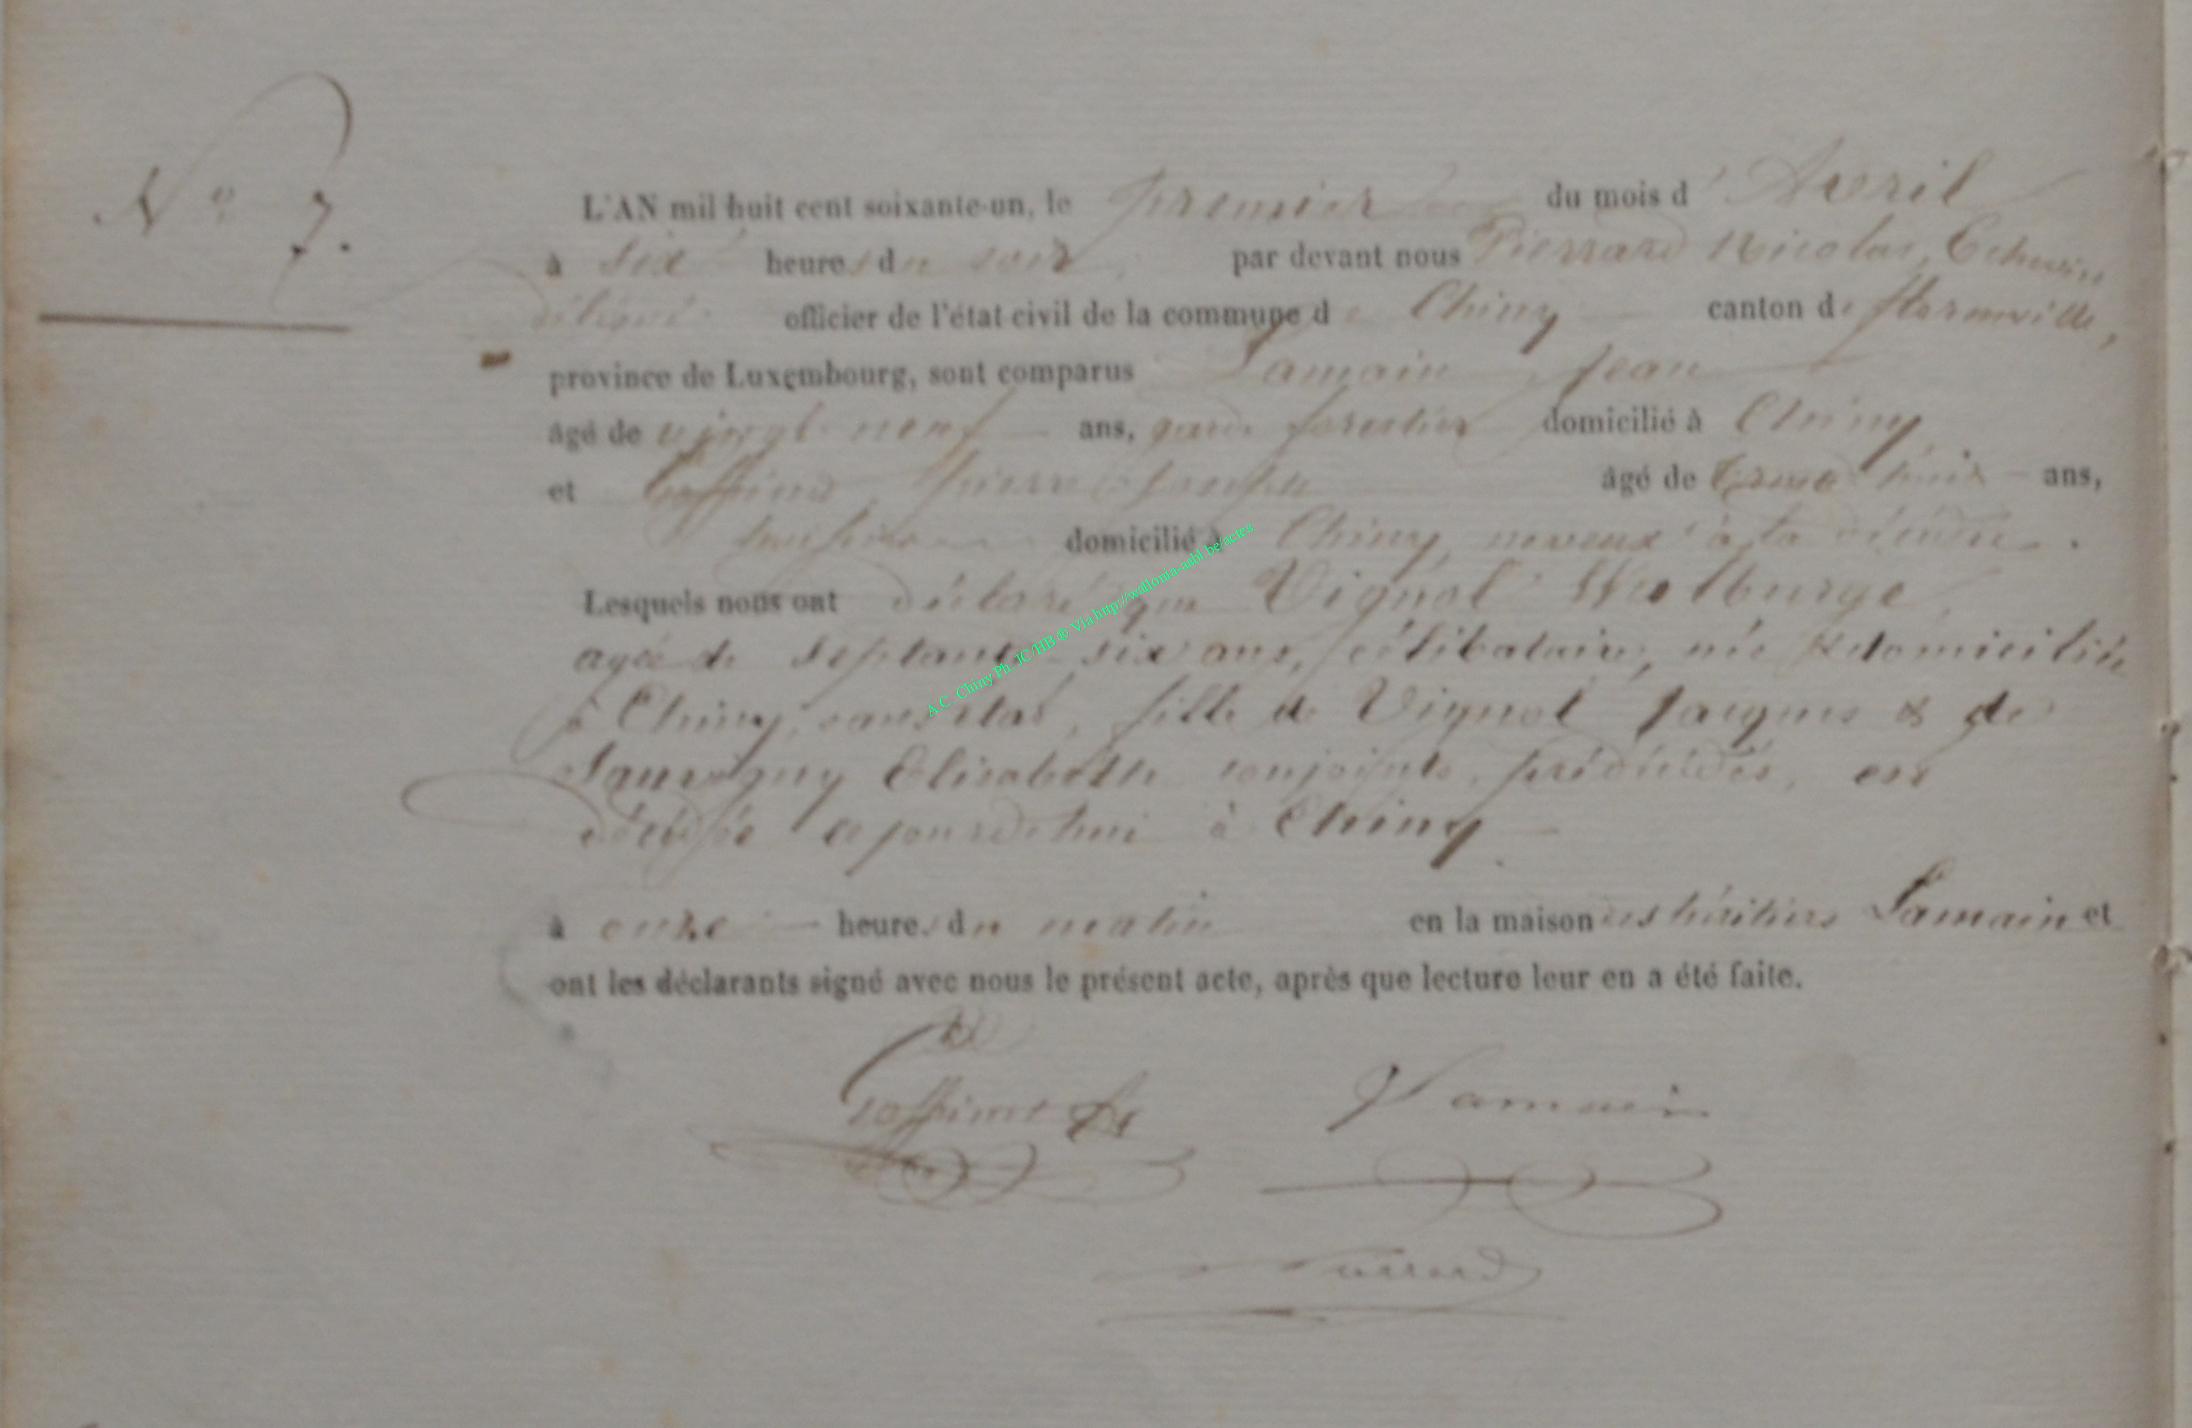 N° 7.
L'AN mil huit cent soixante-un, le premier du mois d'Avril
à six heures du soir, par devant nous Pierrard Nicolas, Echevin
délégué officier de l'état civil de la commune de Chiny canton de florenville,
province de Luxembourg, sont comparus Lamain, Jean
âgé de vingt neuf ans, garde forestier domicilié à Chiny,
et Goffinet, Pierre Joseph âgé de trente huit ans,
domicilié à Chiny, neveux à la décédée.
Lesquels nous ont déclaré que Vignol Walburge,
agée de septante-six ans, célibataire, née & domiciliée
à Chiny, sans état, fille de Vignol Jacques & de
Sauvigny Elisabeth conjoints, prédécédés, est
décédée ce jourd'hui à Chiny
à onze heures du matin en la maison des héritiers Lamain et
ont les déclarants signé avec nous le présent acte, après que lecture leur en a été faite.
Goffinet Lamain
Pierrard
A.C. Chiny Ph. JC/HB ® Via http://wallonia-asbl.be/actes